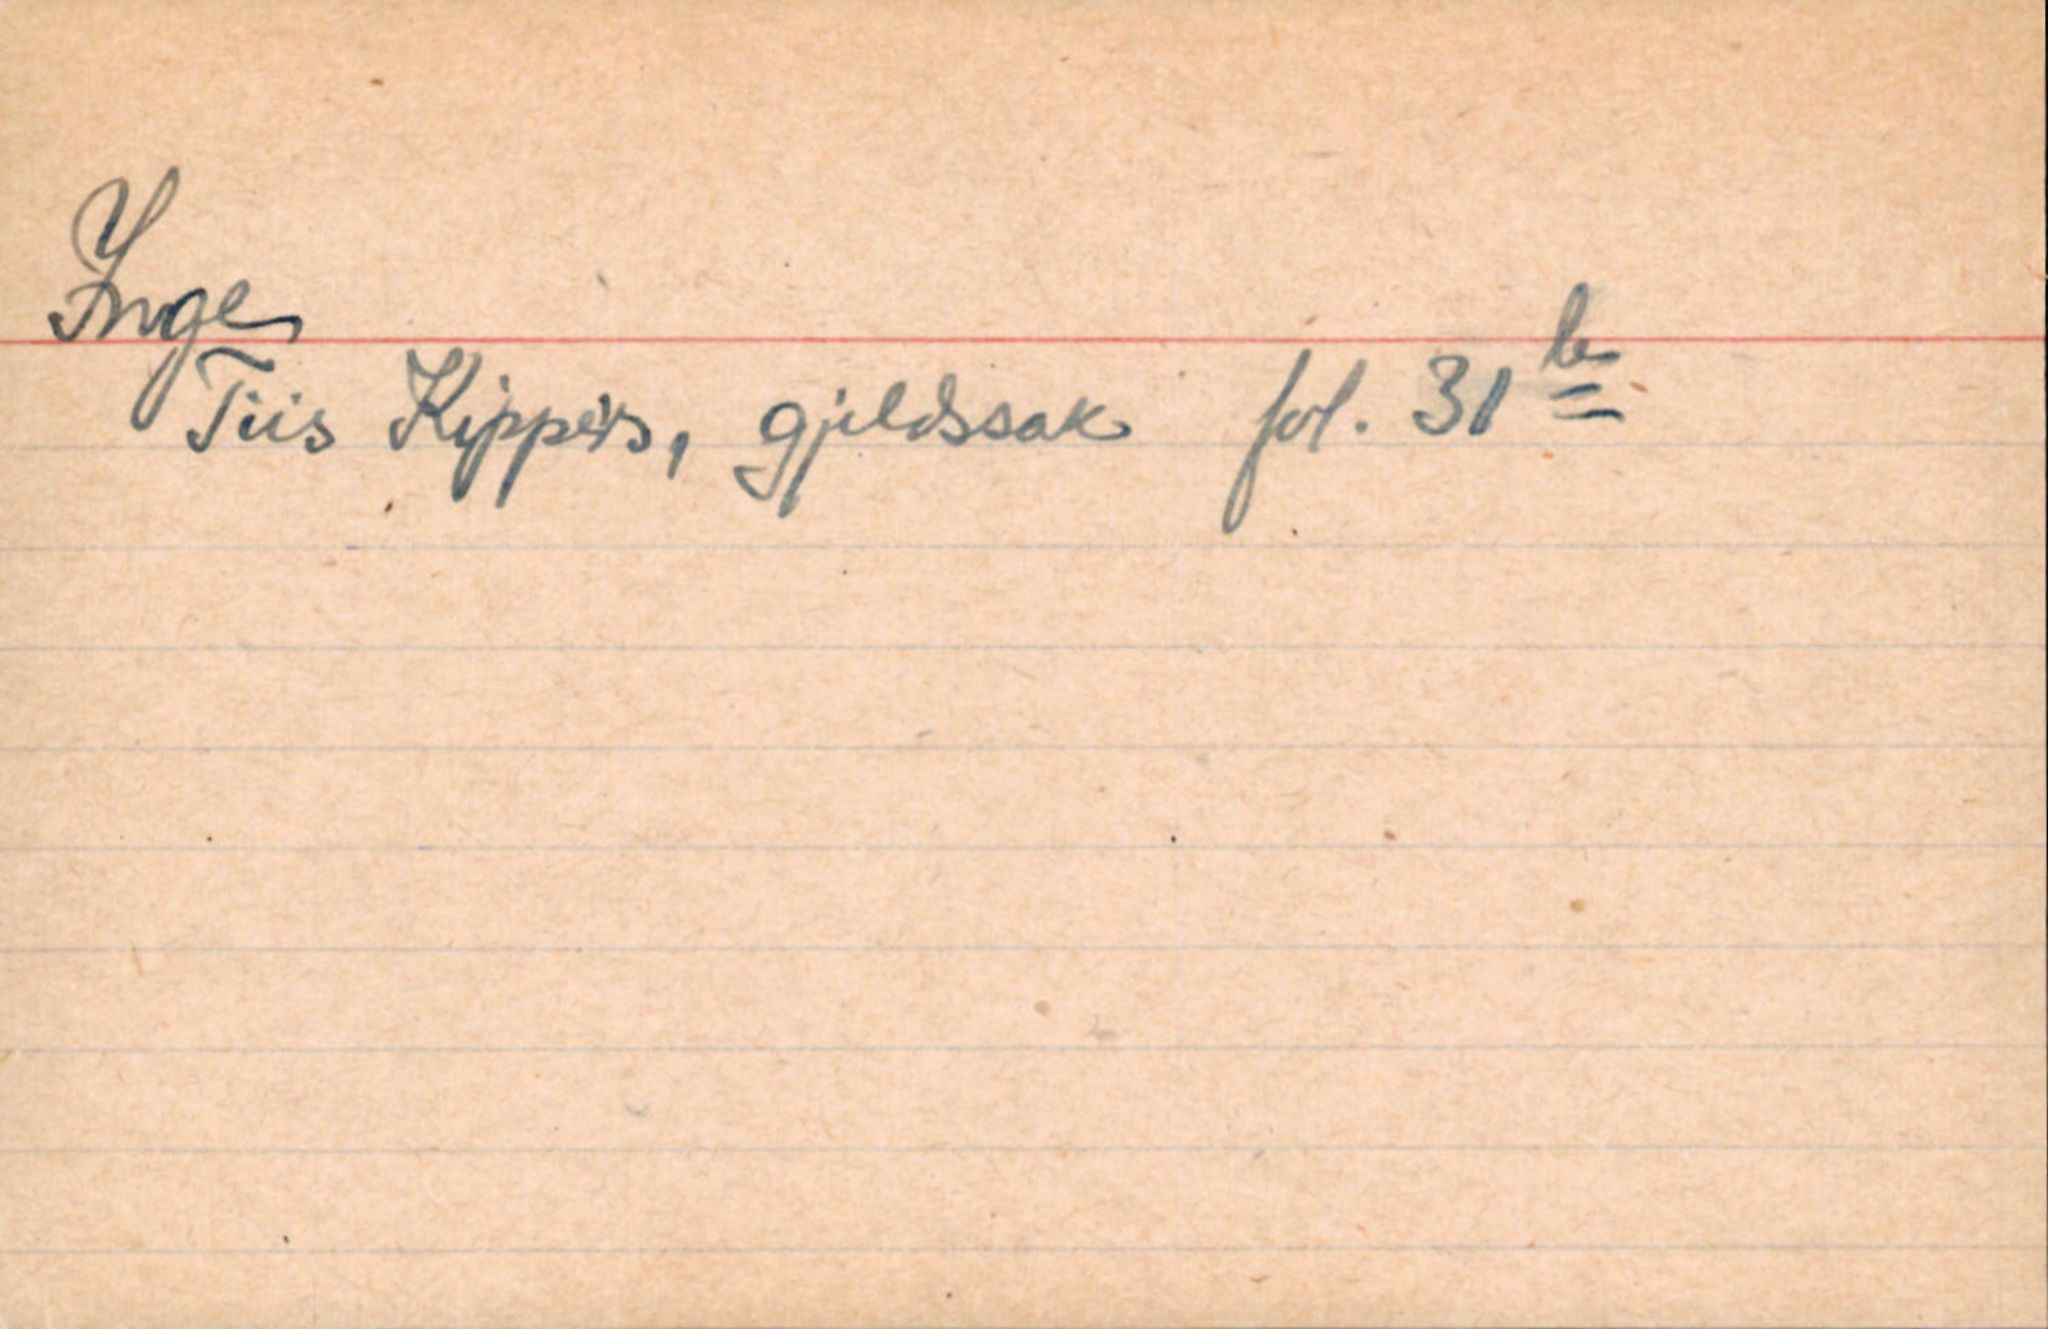 Inge
Tiis Kippers, gjeldssak fol. 31 b